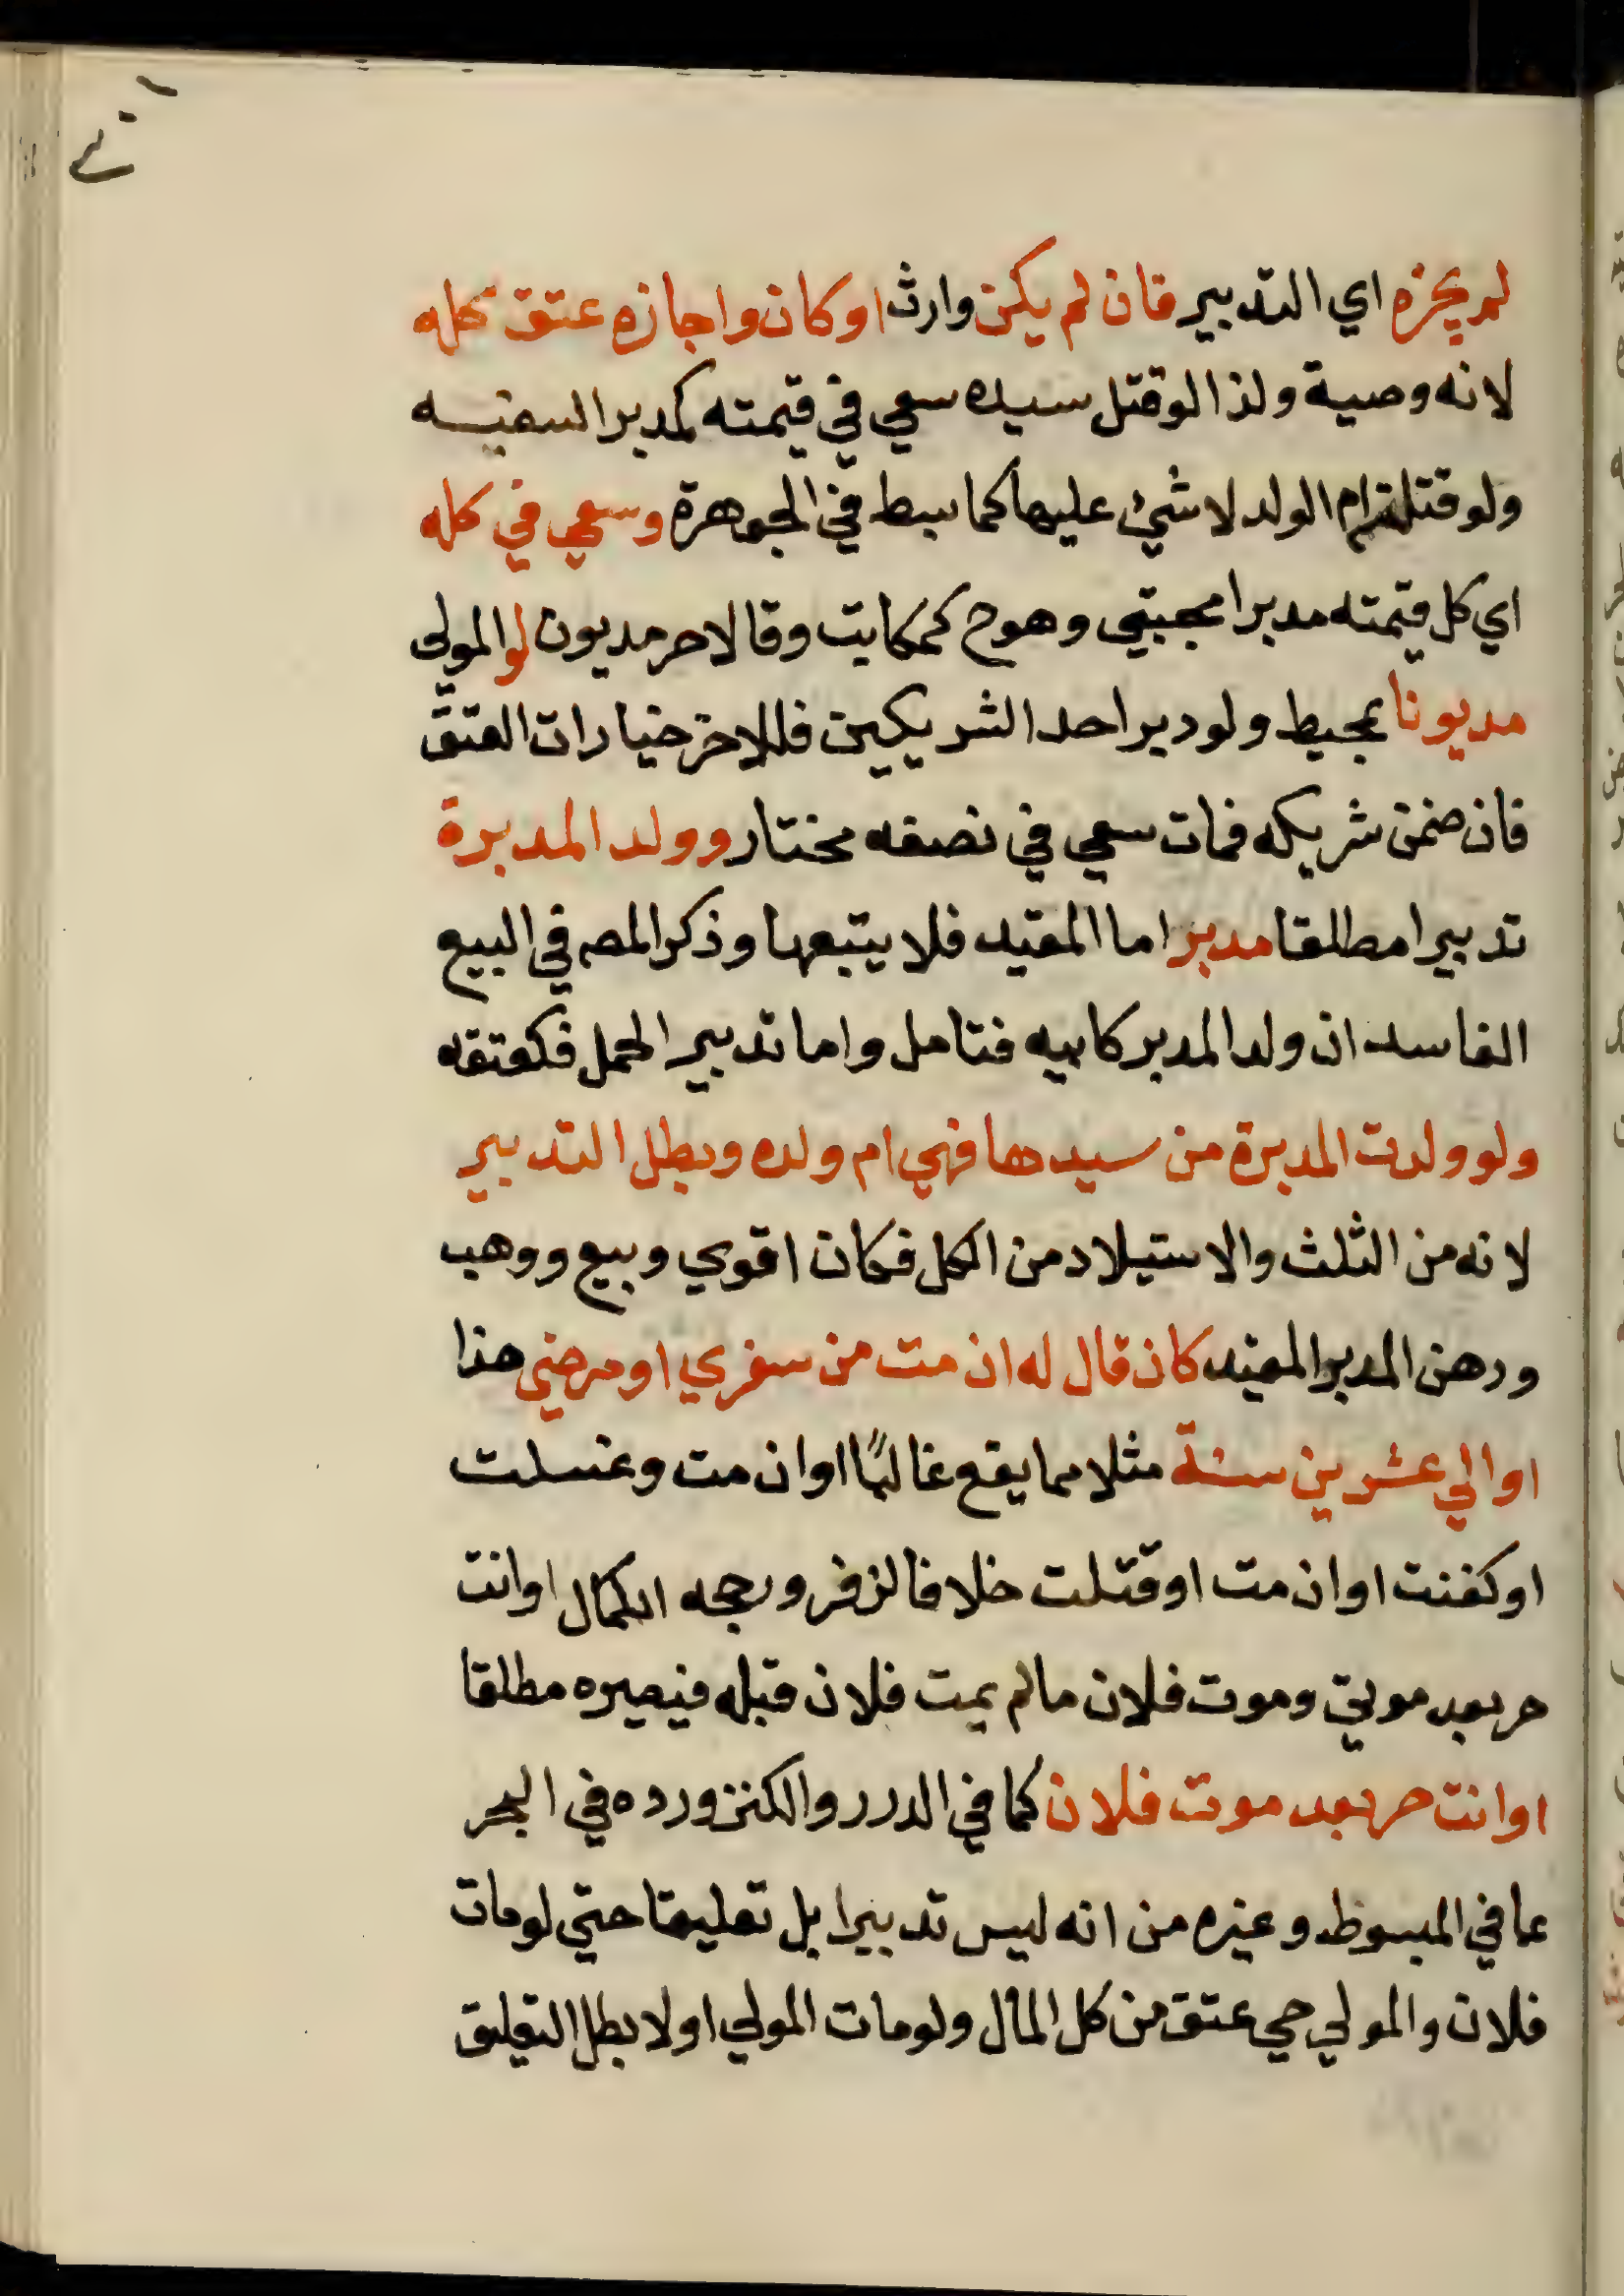 لم يجزه اي التدبير فان لم يكن وارث او كان واجازه عتق كله
لانه وصية ولذا لو قتل سيده سعي في قيمته كمدبر السفيه
ولو قتلته ام الولد لا شيء عليها كما بسط في الجوهرة وسعي في كله
اي كل قيمته مدبرا مجتبي وهو ح كمكاتب وقالا حر مديون لو المولي
مديونا بمحيط ولو دبر احد الشريكين فللاخر خيارات العتق
فان ضمن شريكه فمات سعي في نصفه مختار وولد المدبرة
تدبيرا مطلقا مدبر اما المقيد فلا يتبعها وذكر المص في البيع
الفاسد ان ولد المدبر كابيه فتامل واما تدبير الحمل فكعتقه
ولو ولدت المدبرة من سيدها فهي ام ولده وبطل التدبير
لانه من الثلث والاستيلاد من الكل فكان اقوي وبيع ووهب
ورهن المدبر المقيد كان قال له ان مت من سفري او مرضي هذا
او الي عشرين سنة مثلا مما يقع غالبًا او ان مت وغسلت
او كفنت او ان مت او قتلت خلافا لزفر ورجحه الكمال او انت
حر بعد موتي وموت فلان مالم يمت فلان قبله فيصيره مطلقا
او انت حر بعد موت فلان كما في الدرر والكنز ورده في البحر
عما في المبسوط وغيره من انه ليس تدبيرا بل تعليقا حتي لو مات
فلان والمولي حي عتق من كل المال ولو مات المولي اولا بطل التعليق